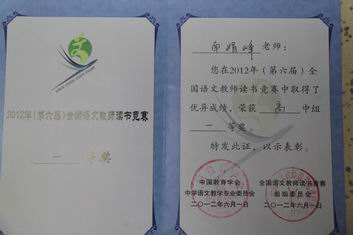 2012年(第六届)全国语文教师读书竞赛
一 等奖
南娟峰 老师:
您在2012年(第六届)全
国语文教师读书竞赛中取得了
优异成绩,荣获 高 中组
一 等奖。
特发此证,以示表彰。
中国教育学会
中学语文教学专业委员会
二〇一二年六月一日
全国语文教师读书竞赛
组织委员会
二〇一二年六月一日